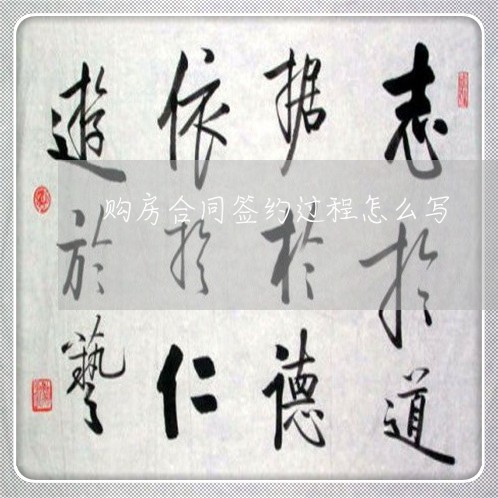 志於道
据於德
依於仁
遊於藝
购房合同签约过程怎么写